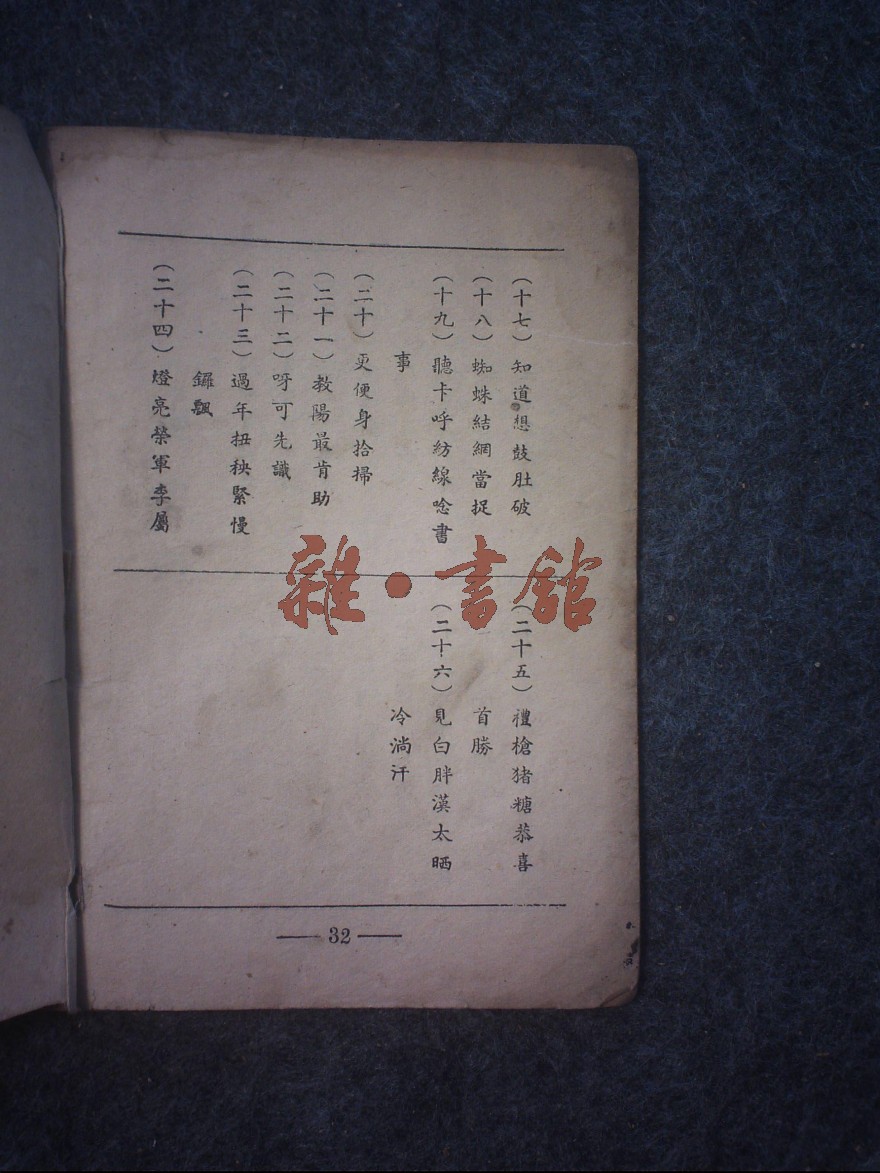 （十七）知道想鼓肚破
（十八）蜘蛛結網當捉
（十九）聽卡呼紡線唸書
事
（二十）更便身拾掃
（二十一）教陽最肯助
（二十二）呀可先識
（二十三）過年扭秧緊慢
鑼飄
（二十四）燈亮榮軍李屬
（二十五）禮槍猪糖恭喜
首勝
（二十六）見白胖漢太晒
冷淌汗
32
雜·書館